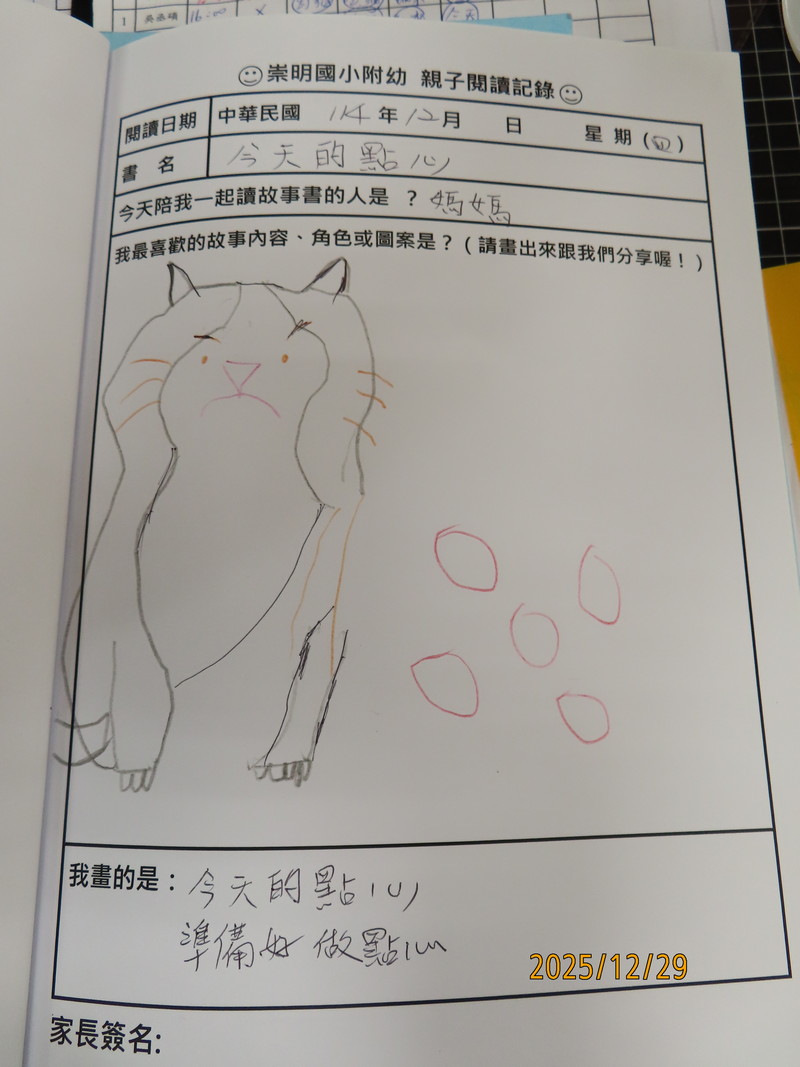 1 16:00 x
崇明國小附幼 親子閱讀記錄
閱讀日期 中華民國 114年12月 日 星期(四)
書名 今天的點心
今天陪我一起讀故事書的人是 ? 媽媽
我最喜歡的故事內容、角色或圖案是?(請畫出來跟我們分享喔!)
我畫的是:今天的點心
準備好 做點心
2025/12/29
家長簽名: